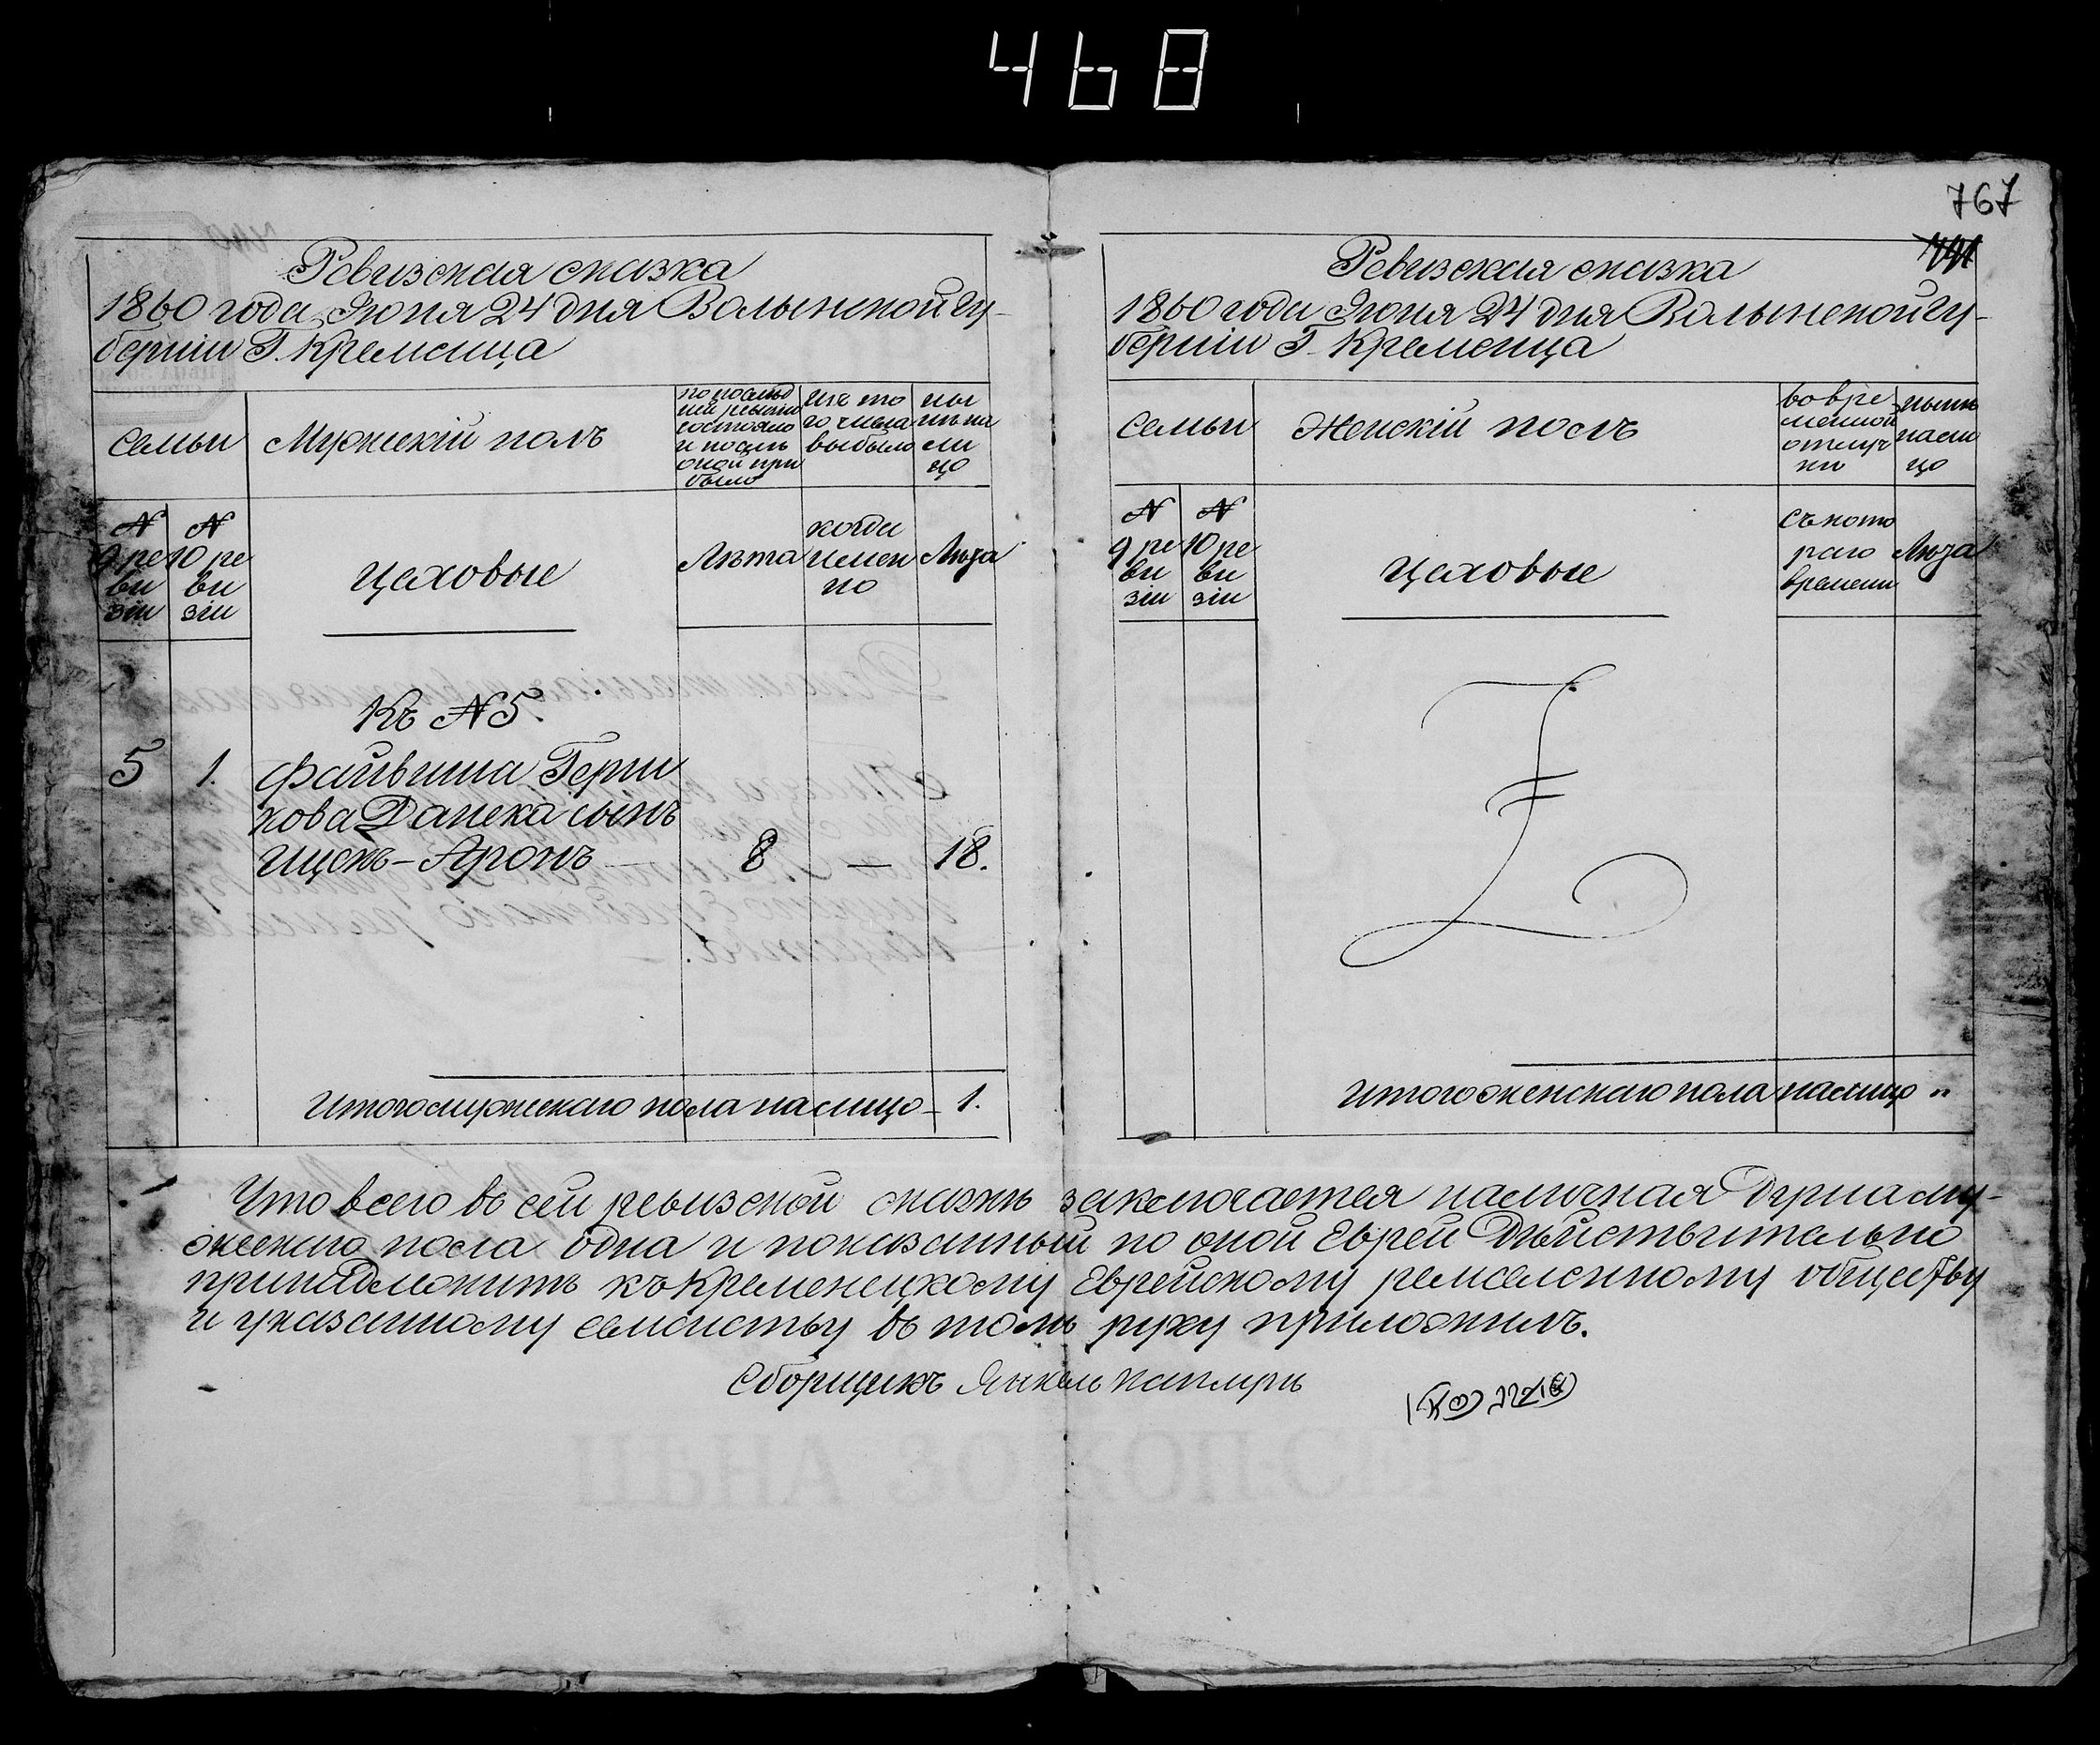 468
767
Ревизская сказка
1860 года Июня 24 дня Волынской Гу-
берніи Г. Кременца
Семьи
Мужескій полъ
по послѣд
ней ревизіи
состояло
и послѣ
оной при
было
изъ то
го числа
выбыло
ны
нѣ на
ли
цо
N
9 ре
ви
зіи
N
10 ре
ви
зіи
Цеховые
Лѣта
когда
имен
но
Лѣта
Къ N 5.
5 1. Файвиша Герш
кова Данека сынъ
Ицекъ-Аронъ — 8 — 18.
Итого мужескаго пола налицо - 1.
Ревизская сказка
1860 года Июня 24 дня Волынской Гу-
берніи Г. Кременца
Семьи
Женскій полъ
во вре
менной
отлуч
ки
нынѣ
нали
цо
N
9 ре
ви
зіи
N
10 ре
ви
зіи
Цеховые
съ кото
раго
времени
Лѣта
Итого женскаго пола налицо „
Что всего въ сей ревизской сказкѣ заключается наличная душа му-
жескаго пола одна и показанный по оной Еврей Дѣйствительно
принадлежитъ къ Кременецкому Еврейскому ремесленному обществу
и указанному семейству въ томъ руку приложилъ.
Сборщикъ Янкель